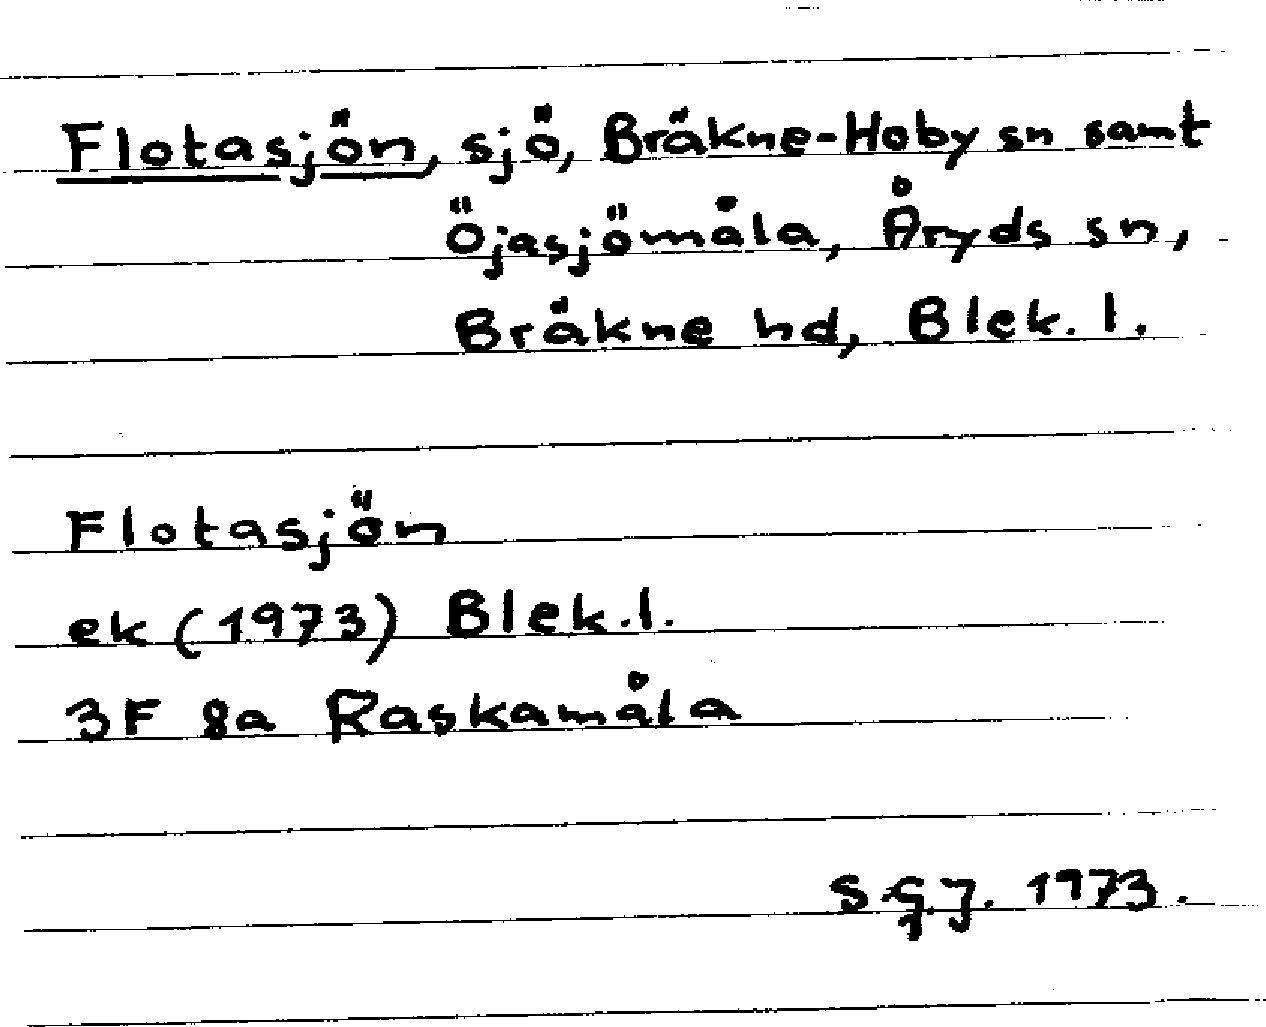 Flotasjön, sjö, Bräkne-Hoby sn samt
Öjasjömåla, Åryds sn,
Bräkne hd, Blek. l.
Flotasjön
ek (1973) Blek.l.
3F 8a Raskamåla
S.G.J. 1973.